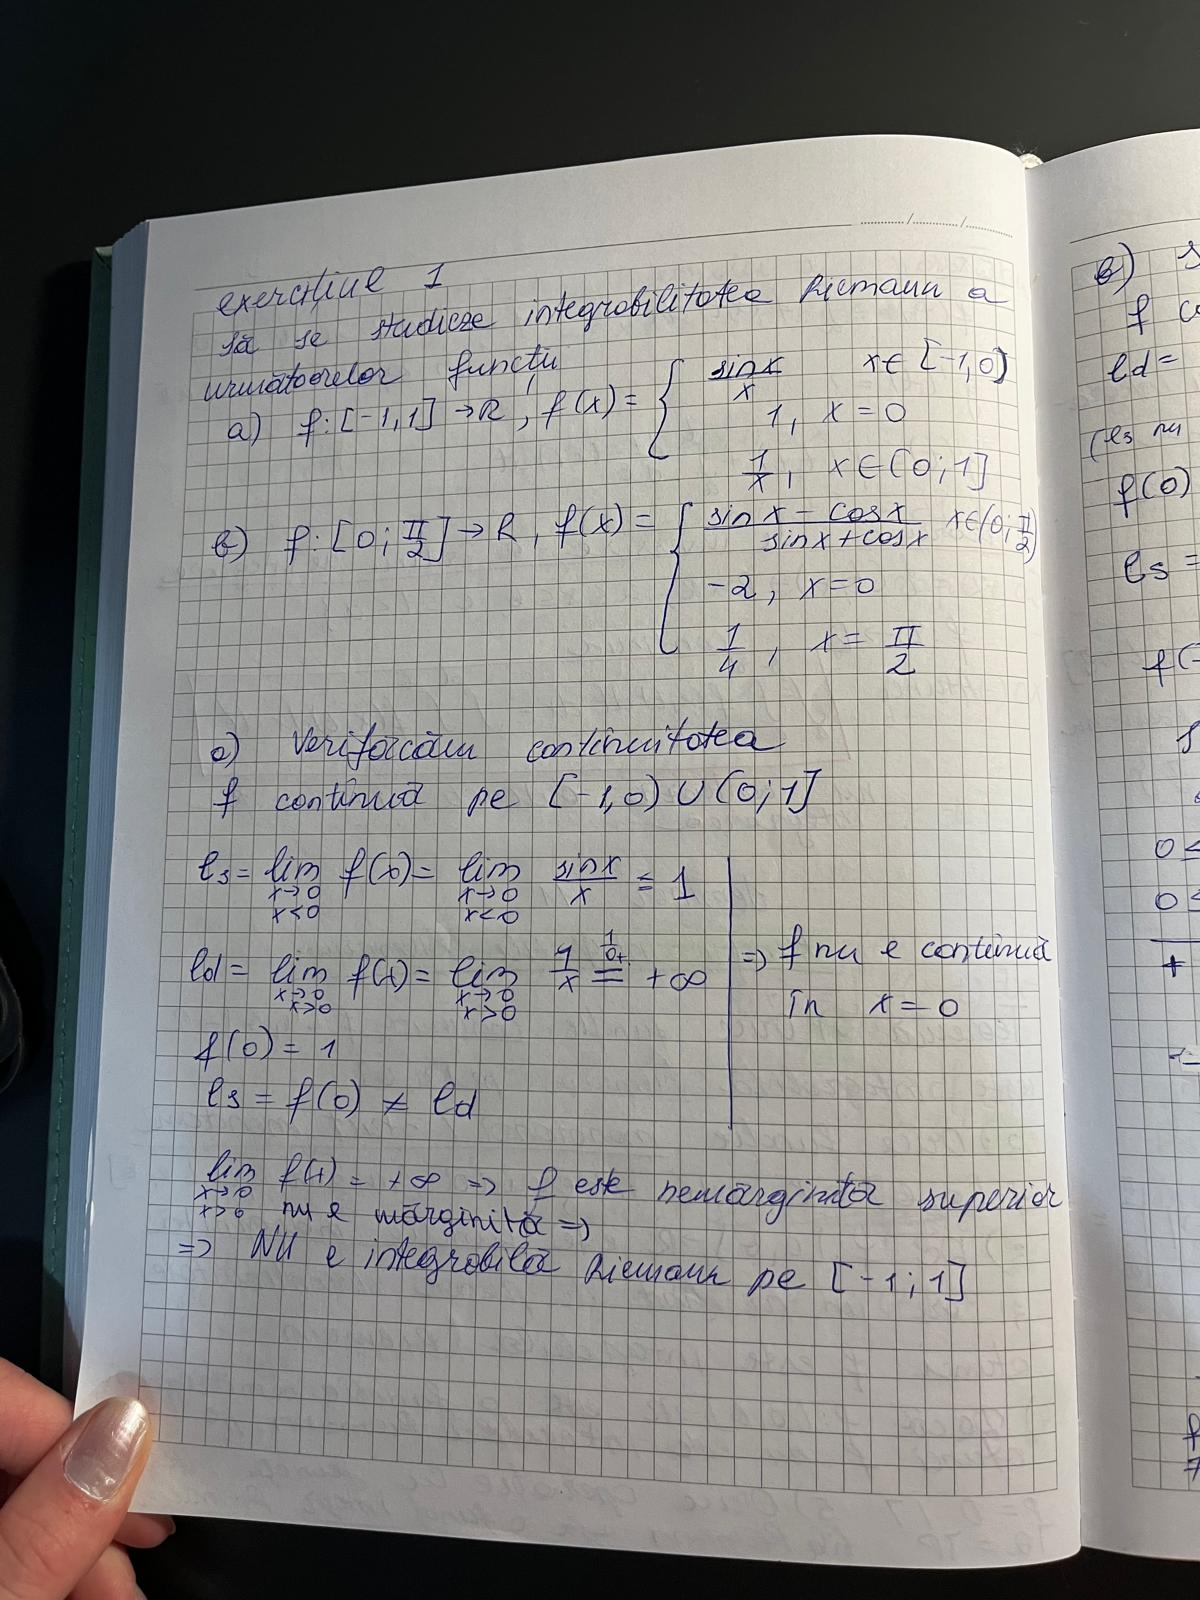 exercițiul 1
să se studieze integrabilitatea Riemann a
următoarelor funcții
a) f: [-1,1] → R, f(x) = { sinx/x x∈ [-1,0)
1, x = 0
1/x, x∈(0;1]
b) f: [0; π/2] → R, f(x) = { (sinx - cosx)/(sinx + cosx) x∈(0; π/2)
-2, x=0
1/4, x = π/2
a) Verificăm continuitatea
f continuă pe [-1,0) ∪ (0;1]
ls = lim x→0 x<0 f(x) = lim x→0 x<0 sinx/x = 1
ld = lim x→0 x>0 f(x) = lim x→0 x>0 1/x = 1/0+ +∞
⇒ f nu e continuă
în x = 0
f(0) = 1
ls = f(0) ≠ ld
lim x→0 x>0 f(x) = +∞ ⇒ f este nemărginită superior
nu e mărginită ⇒
⇒ NU e integrabilă Riemann pe [-1;1]
b)
f
ld =
(ls nu
f(0)
ls =
0 ≤
0 ≤
+